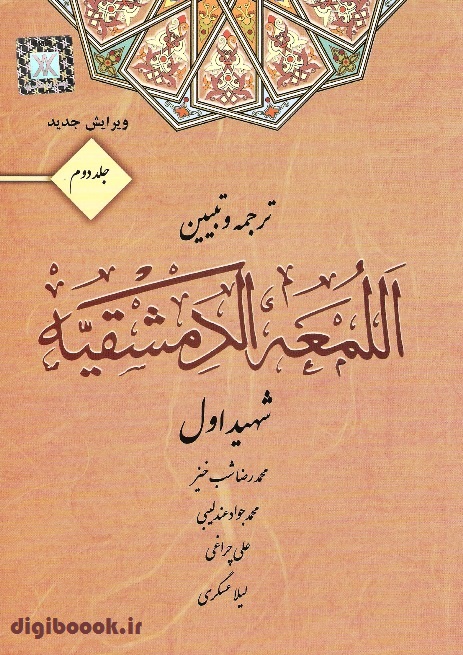 ویرایش جدید
جلد دوم
ترجمه و تبیین
اَللُّمعَه الدِمشقیّه
شهید اول
محمدرضا شب خیز
محمدجواد عندلیبی
علی چراغی
لیلا عسگری
digiboook.ir